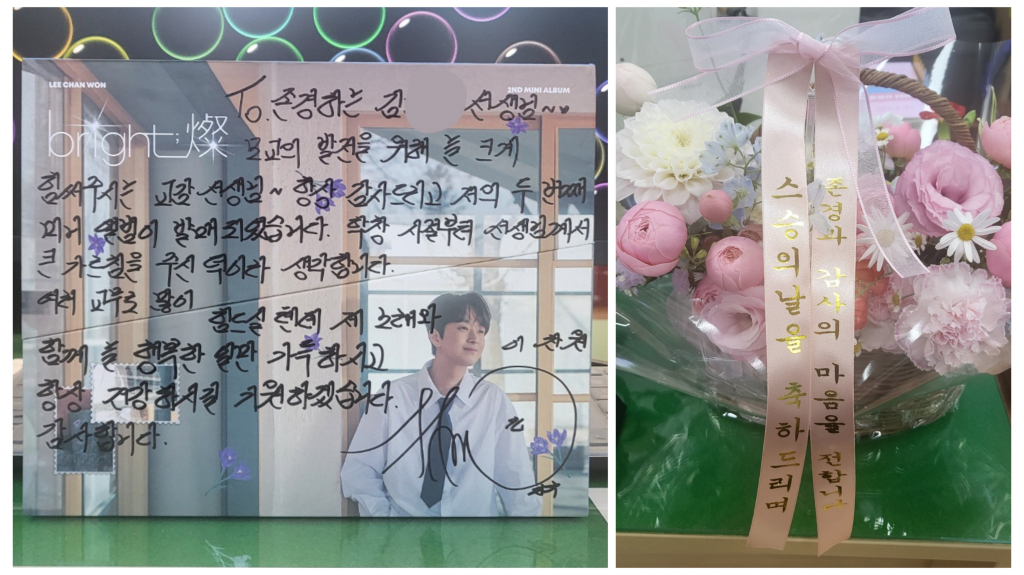 LEE CHAN WON
2ND MINI ALBUM
bright;燦
To. 존경하는 김 선생님~
모교의 발전을 위해 늘 크게
힘써주시는 교감 선생님~ 항상 감사드리고 저의 두 번째
미니 앨범이 발매 되었습니다. 학창 시절부터 선생님께서
큰 가르침을 주신 덕이라 생각합니다.
여러 교무로
힘드실 텐데 제 노래와
함께 늘 행복한 일만 가득하시고
항상 건강하시길 기원하겠습니다.
감사합니다.
이찬원
스승의날을 축하드리며
존경과 감사의 마음을 전합니다